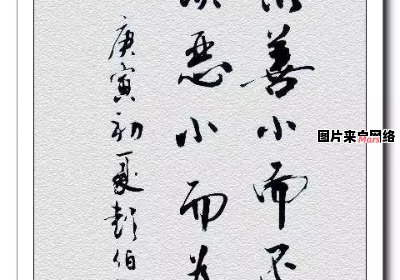 善小而不
恶小而为
庚寅初夏彭伯
图片来自网络